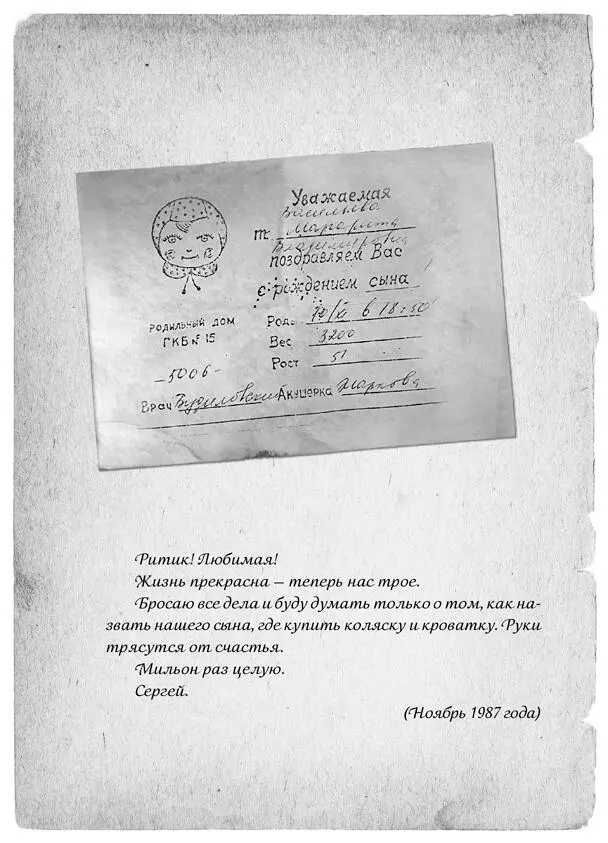 Уважаемая
Васильева
т. Маргарита
Владимировна
поздравляем Вас
с рождением сына!
РОДИЛЬНЫЙ ДОМ
ГКБ № 15
Род. /XI в 18:50
Вес 3200
Рост 51
-5006-
Врач Акушерка
Ритик! Любимая!
Жизнь прекрасна – теперь нас трое.
Бросаю все дела и буду думать только о том, как на-
звать нашего сына, где купить коляску и кроватку. Руки
трясутся от счастья.
Мильон раз целую.
Сергей.
(Ноябрь 1987 года)